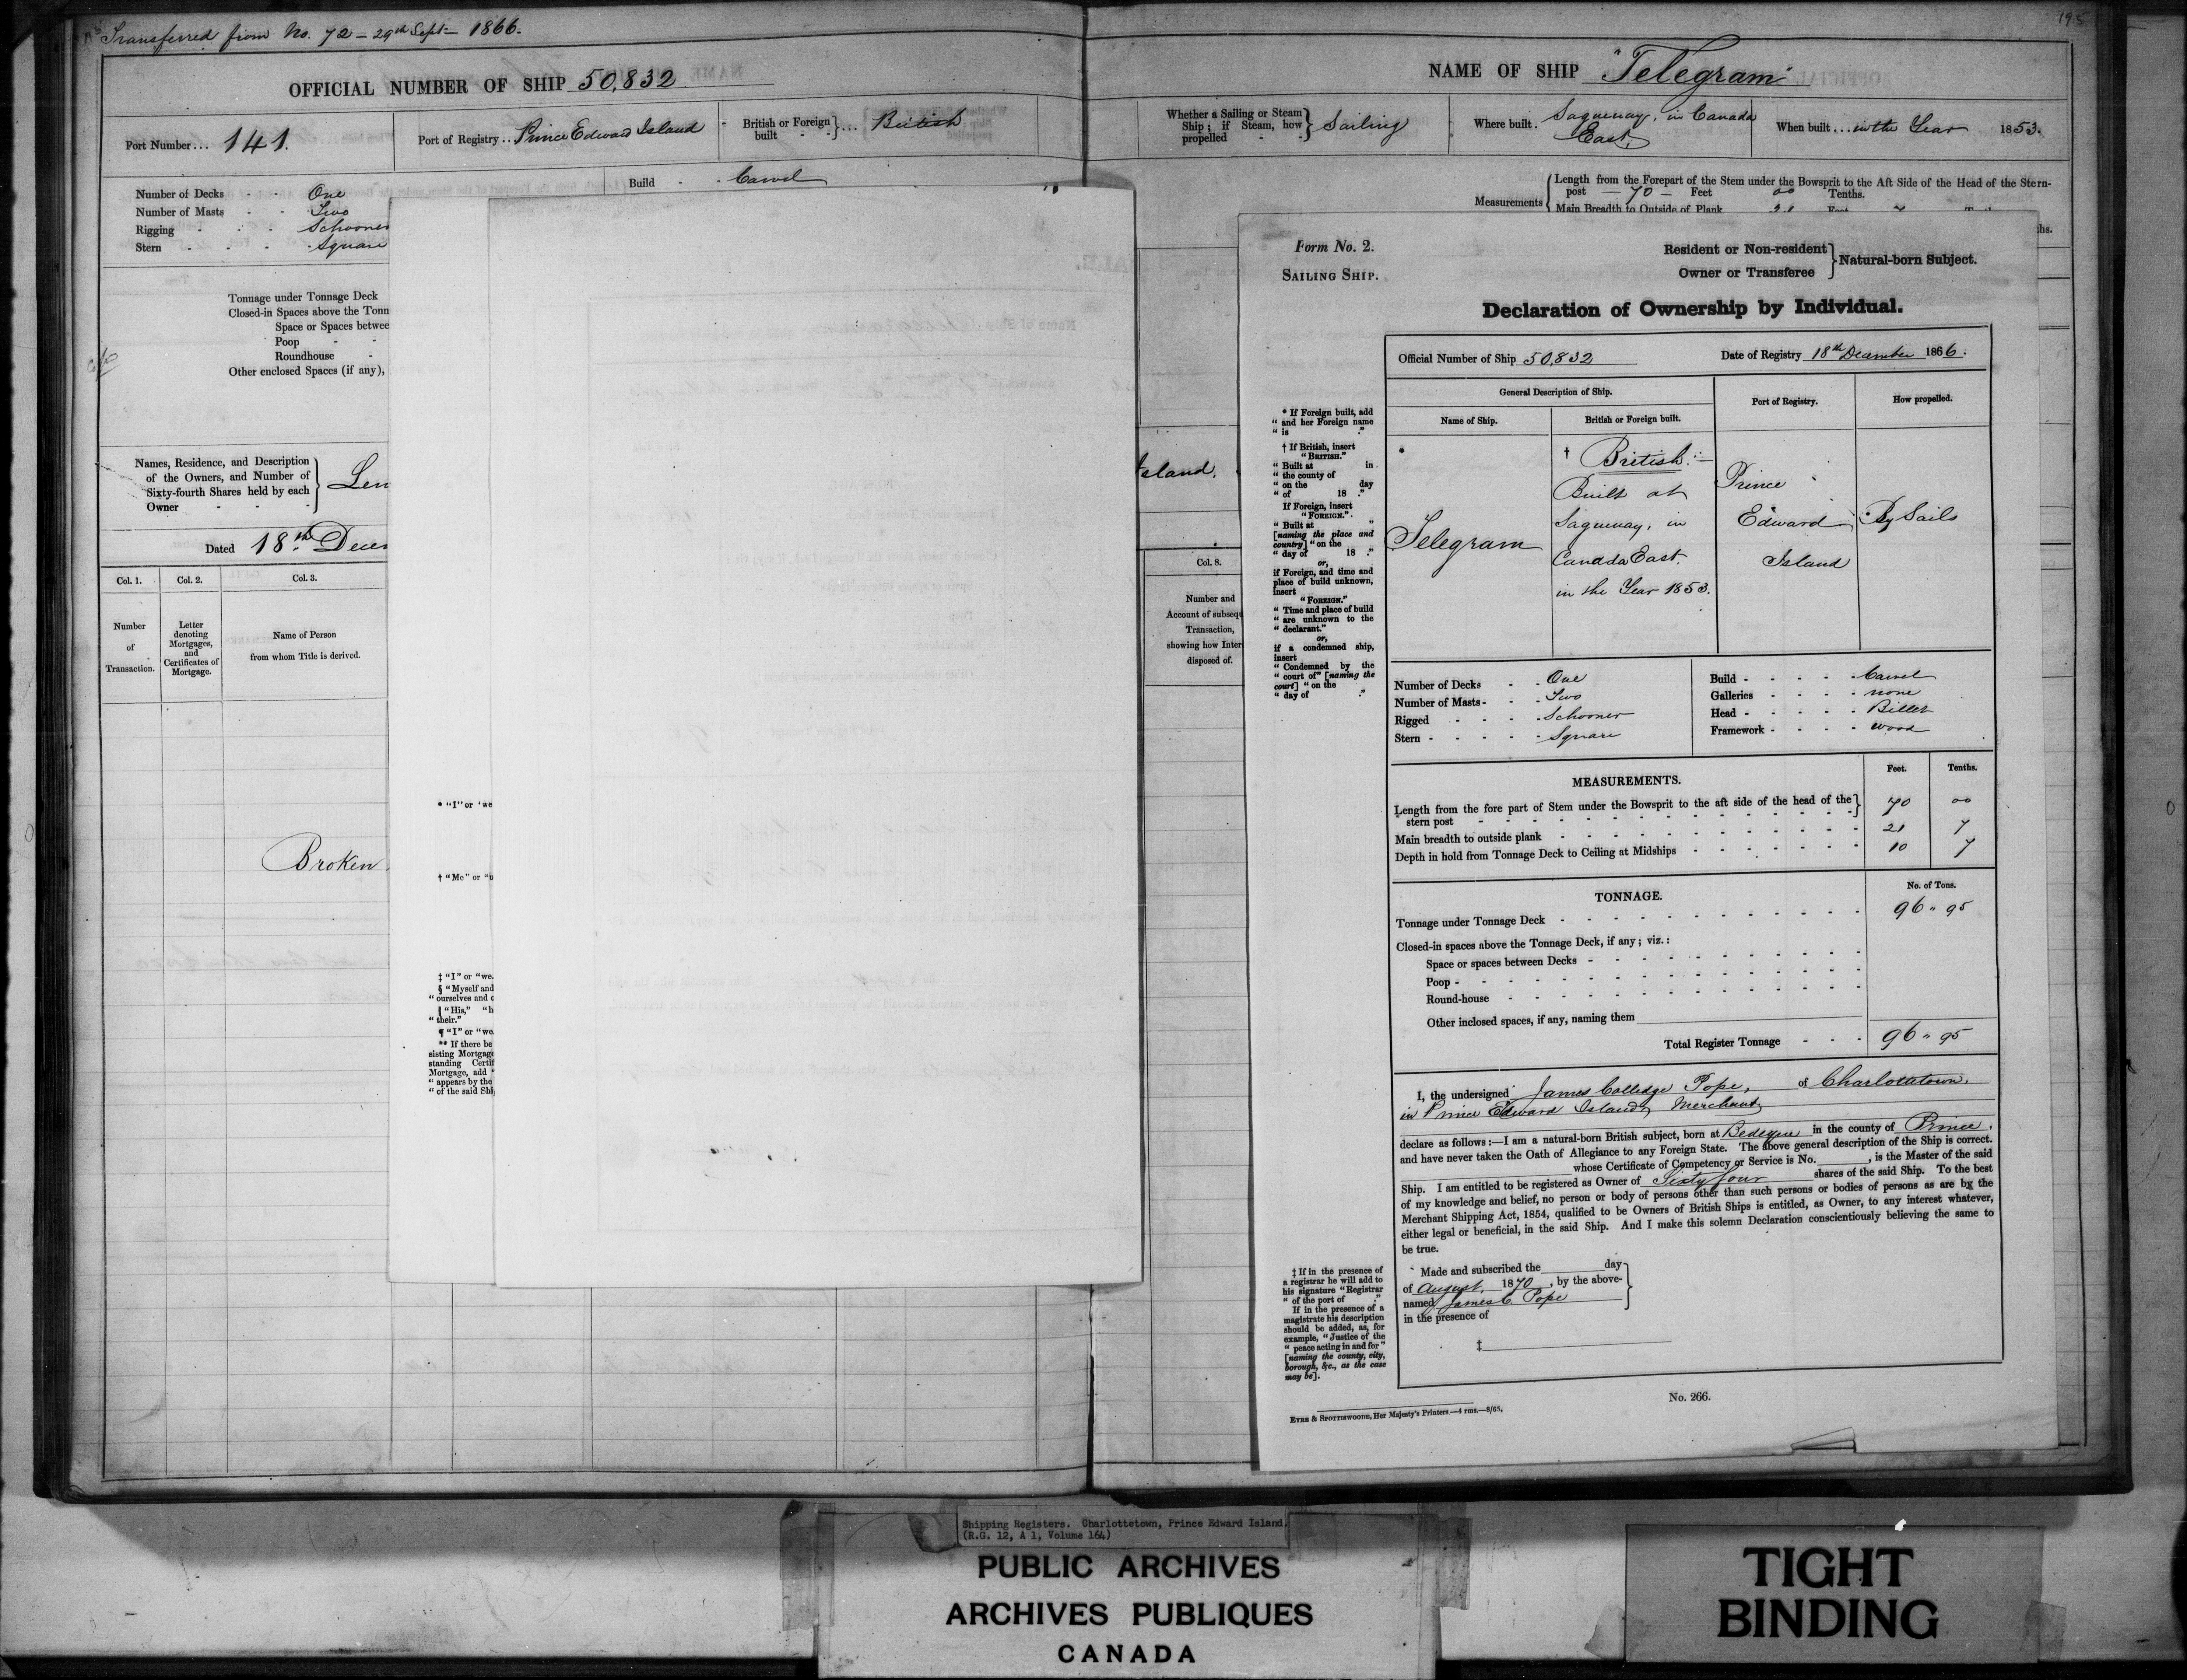 Transferred from No. 72 - 29th Sept - 1866.
OFFICIAL NUMBER OF SHIP 50,832
Port Number... 141.
Port of Registry.. Prince Edward Island
British or Foreign built } ... British
Number of Decks - - One
Number of Masts - - Two
Rigging - - - Schooner
Stern - - - - Square
Build - - Carvel
Tonnage under Tonnage Deck
Closed-in Spaces above the Tonn
Space or Spaces betwee
Poop - -
Roundhouse -
Other enclosed Spaces (if any),
Names, Residence, and Description
of the Owners, and Number of
Sixty-fourth Shares held by each
Owner - - - } Lem
Dated 18th Decem
Col. 1. Col. 2. Col. 3.
Number of Transaction.
Letter denoting Mortgages, and Certificates of Mortgage.
Name of Person from whom Title is derived.
Broken
* "I" or 'we
† "Me" or "u
‡ "I" or "we.
§ "Myself and
" ourselves and o
‖ "His," "h
" their."
¶ "I" or "we.
** If there be
sisting Mortgage
standing Certif
Mortgage, add "
" appears by the
" of the said Shi
195
NAME OF SHIP "Telegram"
Whether a Sailing or Steam Ship; if Steam, how propelled - - } Sailing
Where built . Saguenay, in Canada East,
When built ... in the Year 1853.
Measurements { Length from the Forepart of the Stem under the Bowsprit to the Aft Side of the Head of the Stern-
post - 70 - Feet 00 Tenths.
Main Breadth to Outside of Plank 21 Feet 7
hs.
Island.
Col. 8.
Number and
Account of subsequ
Transaction,
showing how Inter
disposed of.
Form No. 2.
SAILING SHIP.
Resident or Non-resident
Owner or Transferee } Natural-born Subject.
Declaration of Ownership by Individual.
Official Number of Ship 50,832 Date of Registry 18th December 1866.
General Description of Ship. Port of Registry. How propelled.
Name of Ship. British or Foreign built.
* Telegram
† British:-
Built at
Saguenay, in
Canada East.
in the Year 1853.
Prince
Edward
Island
By Sails
* If Foreign built, add
" and her Foreign name
" is ."
† If British, insert
" BRITISH."
" Built at in
" the county of
" on the day
" of 18 ."
If Foreign, insert
" FOREIGN.".
" Built at "
[naming the place and
country] " on the
" day of 18 ."
or,
if Foreign, and time and
place of build unknown,
insert
" FOREIGN."
" Time and place of build
" are unknown to the
" declarant."
or,
if a condemned ship,
insert
" Condemned by the
" court of" [naming the
court] " on the
" day of ."
Number of Decks - - One
Number of Masts - - - Two
Rigged - - - - Schooner
Stern - - - - - Square
Build - - - - - Carvel
Galleries - - - - none
Head - - - - - Billet
Framework - - - - wood
MEASUREMENTS. Feet. Tenths.
Length from the fore part of Stem under the Bowsprit to the aft side of the head of the
stern post } 70 00
Main breadth to outside plank 21 7
Depth in hold from Tonnage Deck to Ceiling at Midships 10 7
TONNAGE. No. of Tons.
Tonnage under Tonnage Deck 96 " 95
Closed-in spaces above the Tonnage Deck, if any; viz.:
Space or spaces between Decks
Poop
Round-house
Other inclosed spaces, if any, naming them
Total Register Tonnage - - - 96 " 95
I, the undersigned James Colledge Pope, of Charlottetown,
in Prince Edward Island, Merchant,
declare as follows:—I am a natural-born British subject, born at Bedeque in the county of Prince,
and have never taken the Oath of Allegiance to any Foreign State. The above general description of the Ship is correct.
whose Certificate of Competency or Service is No. , is the Master of the said
Ship. I am entitled to be registered as Owner of Sixty four shares of the said Ship. To the best
of my knowledge and belief, no person or body of persons other than such persons or bodies of persons as are by the
Merchant Shipping Act, 1854, qualified to be Owners of British Ships is entitled, as Owner, to any interest whatever,
either legal or beneficial, in the said Ship. And I make this solemn Declaration conscientiously believing the same to
be true.
Made and subscribed the day
of August, 1870, by the above-
named James C. Pope
in the presence of
‡
‡ If in the presence of
a registrar he will add to
his signature "Registrar
" of the port of ."
If in the presence of a
magistrate his description
should be added, as, for
example, "Justice of the
" peace acting in and for"
[naming the county, city,
borough, &c., as the case
may be].
No. 266.
EYRE & SPOTTISWOODE, Her Majesty's Printers.—4 rms.—8/65.
Shipping Registers. Charlottetown, Prince Edward Island.
(R.G. 12, A 1, Volume 164)
PUBLIC ARCHIVES
ARCHIVES PUBLIQUES
CANADA
TIGHT
BINDING